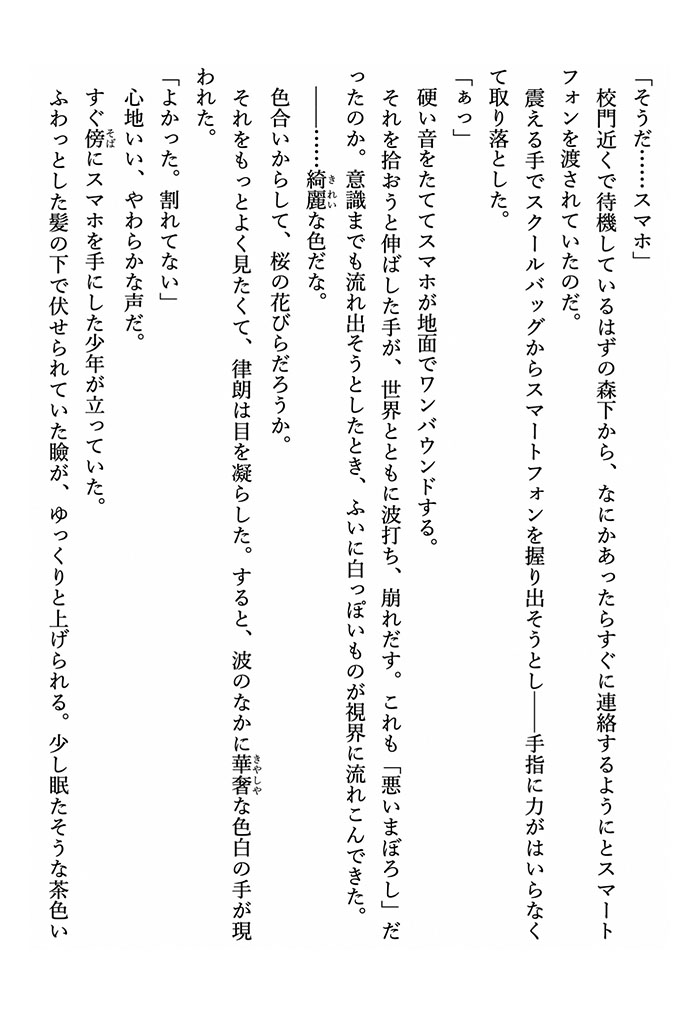 「そうだ……スマホ」
校門近くで待機しているはずの森下から、なにかあったらすぐに連絡するようにとスマート
フォンを渡されていたのだ。
震える手でスクールバッグからスマートフォンを握り出そうとし――手指に力がはいらなく
て取り落とした。
「ぁっ」
硬い音をたててスマホが地面でワンバウンドする。
それを拾おうと伸ばした手が、世界とともに波打ち、崩れだす。これも「悪いまぼろし」だ
ったのか。意識までも流れ出そうとしたとき、ふいに白っぽいものが視界に流れこんできた。
――……綺麗な色だな。
色合いからして、桜の花びらだろうか。
それをもっとよく見たくて、律朗は目を凝らした。すると、波のなかに華奢な色白の手が現
われた。
「よかった。割れてない」
心地いい、やわらかな声だ。
すぐ傍にスマホを手にした少年が立っていた。
ふわっとした髪の下で伏せられていた瞼が、ゆっくりと上げられる。少し眠たそうな茶色い